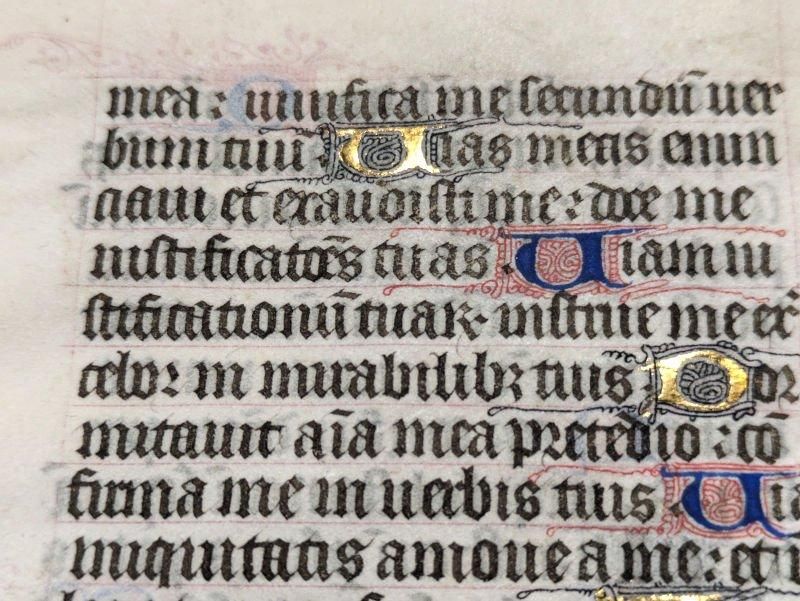 mea : uiuifica me secundū uer
bum tuū . Uias meas enun
ciaui et exaudisti me : doce me
iustificatōes tuas . Uiam iu
stificationū tuaꝝ · instrue me et ex
celoꝛ in mirabilibꝫ tuis . Doꝛ
mitauit aīa mea pretedio : cō
firma me in uerbis tuis . Uia
iniquitatis amoue a me : et